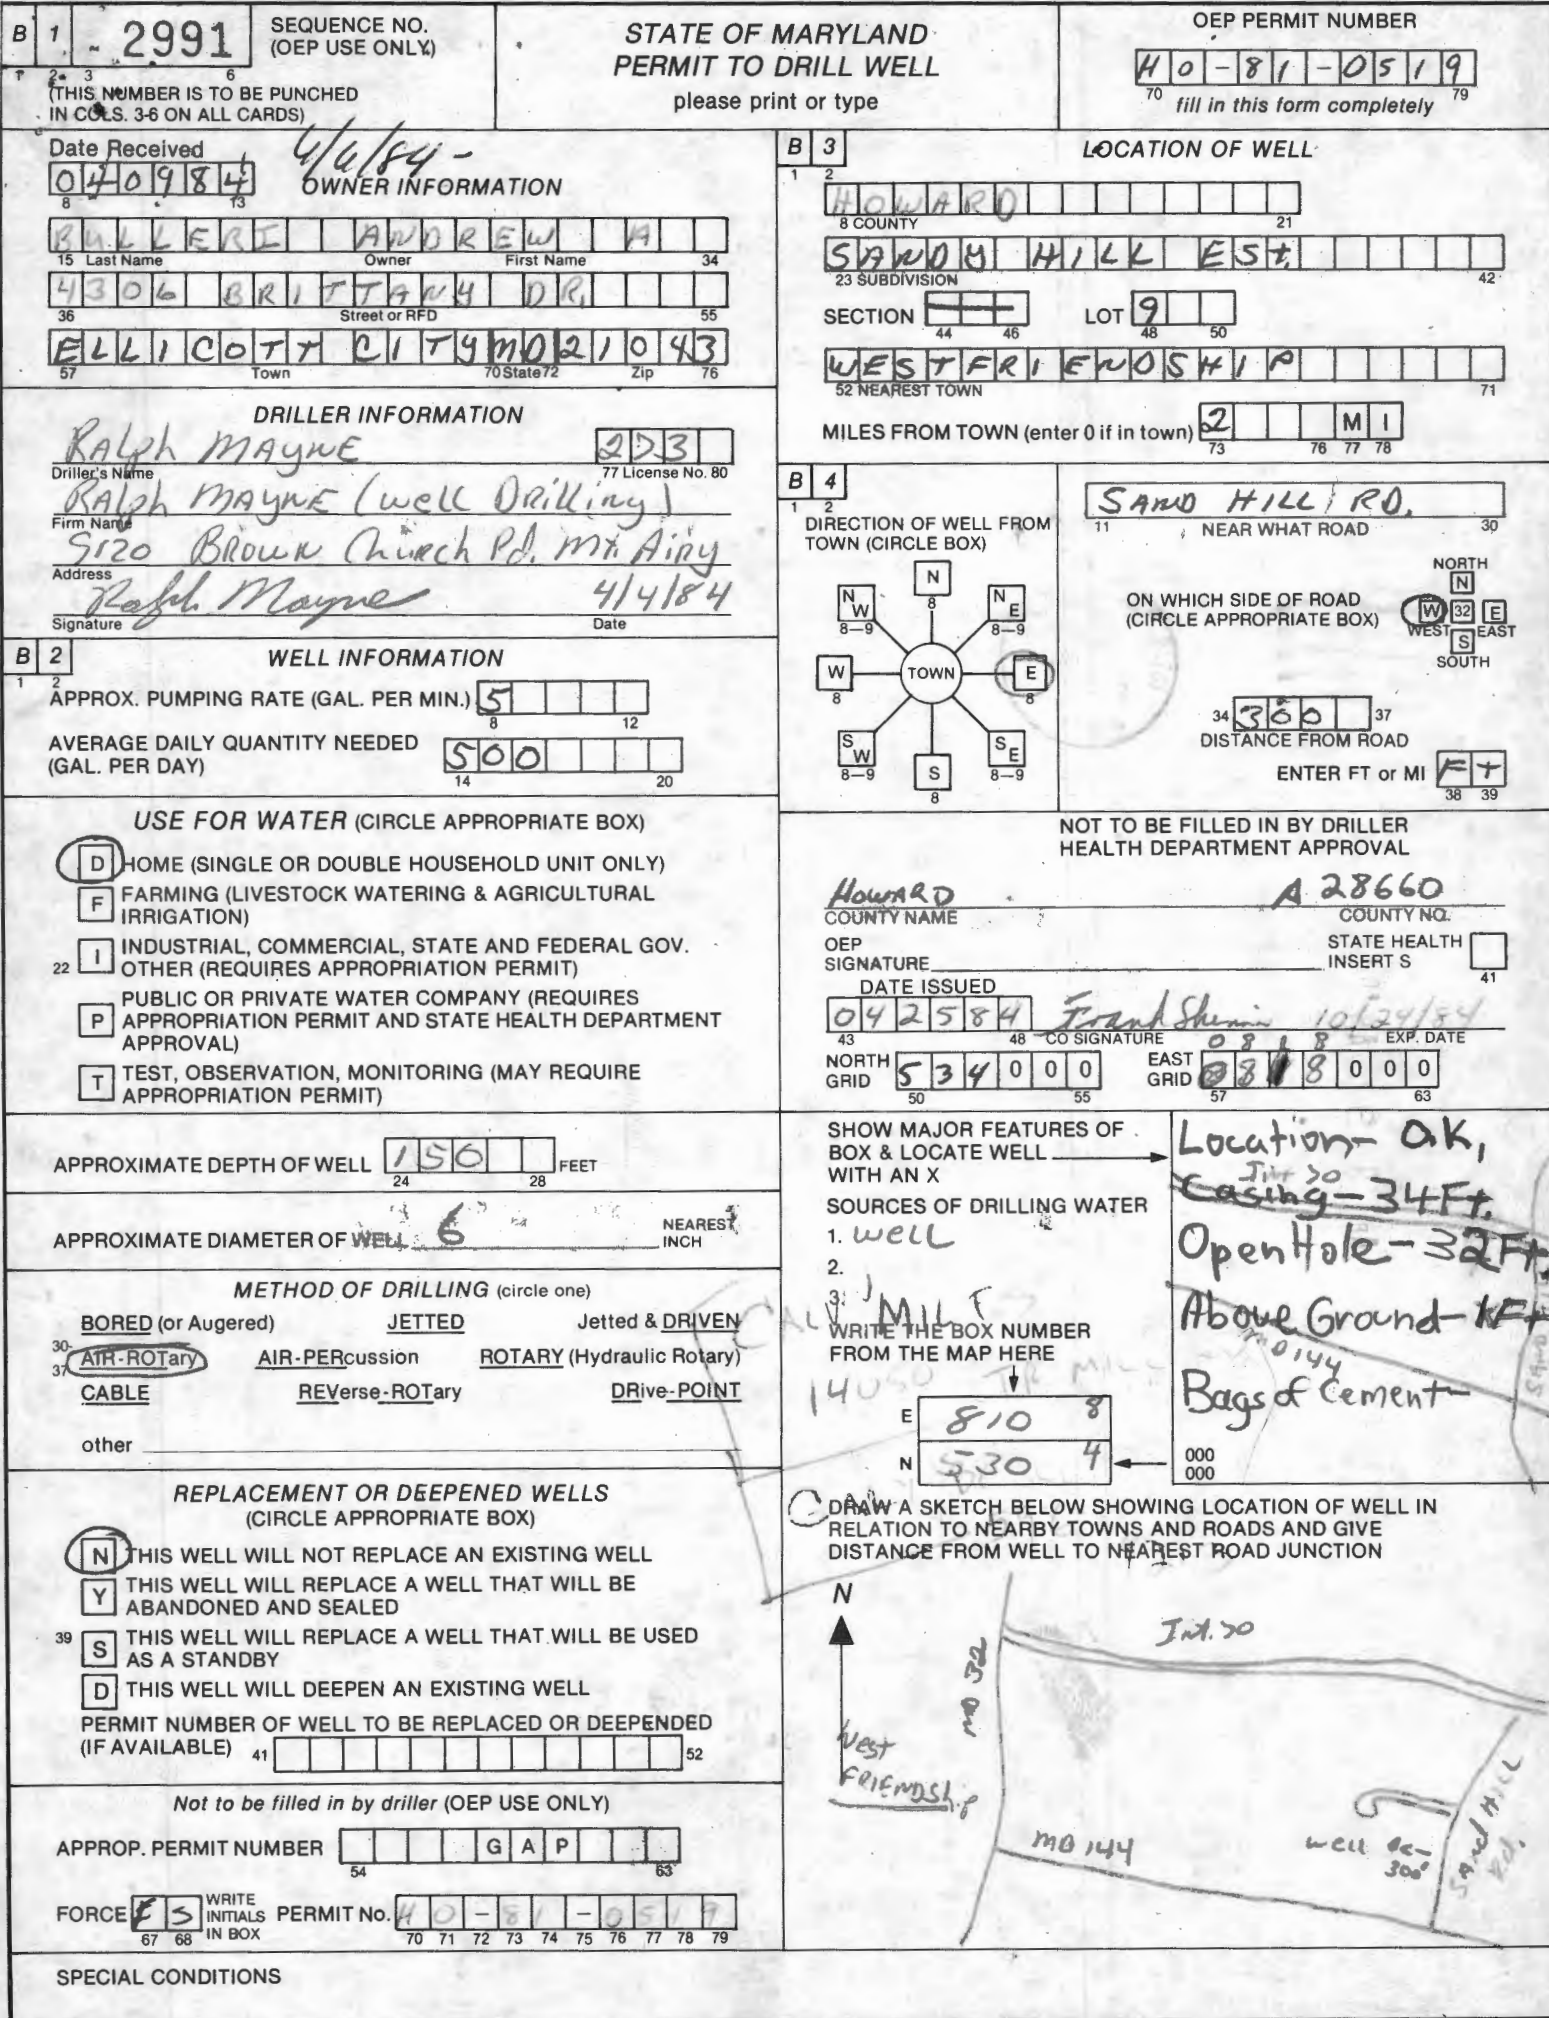 B 1 2991 SEQUENCE NO. (OEP USE ONLY)
1 2 3 6
(THIS NUMBER IS TO BE PUNCHED
IN COLS. 3-6 ON ALL CARDS)
STATE OF MARYLAND
PERMIT TO DRILL WELL
please print or type
OEP PERMIT NUMBER
HO-81-0519
70 fill in this form completely 79
Date Received
040984
8 13
OWNER INFORMATION
BULLERI ANDREW A
15 Last Name Owner First Name 34
4306 BRITTANY DR.
36 Street or RFD 55
ELLICOTT CITY MD 21043
57 Town 70 State 72 Zip 76
DRILLER INFORMATION
RALPh MAYNE 2D3
Driller's Name 77 License No. 80
RALph MAYNE (well Drilling)
Firm Name
9120 BROWN Church Rd. Mt. Airy
Address
Ralph Mayne 4/4/84
Signature Date
B 2 WELL INFORMATION
1 2
APPROX. PUMPING RATE (GAL. PER MIN.) 5
8 12
AVERAGE DAILY QUANTITY NEEDED
(GAL. PER DAY) 500
14 20
USE FOR WATER (CIRCLE APPROPRIATE BOX)
D HOME (SINGLE OR DOUBLE HOUSEHOLD UNIT ONLY)
F FARMING (LIVESTOCK WATERING & AGRICULTURAL
IRRIGATION)
22 I INDUSTRIAL, COMMERCIAL, STATE AND FEDERAL GOV.
OTHER (REQUIRES APPROPRIATION PERMIT)
P PUBLIC OR PRIVATE WATER COMPANY (REQUIRES
APPROPRIATION PERMIT AND STATE HEALTH DEPARTMENT
APPROVAL)
T TEST, OBSERVATION, MONITORING (MAY REQUIRE
APPROPRIATION PERMIT)
APPROXIMATE DEPTH OF WELL 150 FEET
24 28
APPROXIMATE DIAMETER OF WELL 6 NEAREST
INCH
METHOD OF DRILLING (circle one)
BORED (or Augered) JETTED Jetted & DRIVEN
30-
37 AIR-ROTary AIR-PERcussion ROTARY (Hydraulic Rotary)
CABLE REVerse-ROTary DRive-POINT
other
REPLACEMENT OR DEEPENED WELLS
(CIRCLE APPROPRIATE BOX)
N THIS WELL WILL NOT REPLACE AN EXISTING WELL
Y THIS WELL WILL REPLACE A WELL THAT WILL BE
ABANDONED AND SEALED
39 S THIS WELL WILL REPLACE A WELL THAT WILL BE USED
AS A STANDBY
D THIS WELL WILL DEEPEN AN EXISTING WELL
PERMIT NUMBER OF WELL TO BE REPLACED OR DEEPENDED
(IF AVAILABLE) 41 52
Not to be filled in by driller (OEP USE ONLY)
APPROP. PERMIT NUMBER GAP
54 63
FORCE ES WRITE INITIALS IN BOX PERMIT No. HO-81-0519
67 68 70 71 72 73 74 75 76 77 78 79
SPECIAL CONDITIONS
B 3 LOCATION OF WELL
1 2
HOWARD
8 COUNTY 21
SANDY HILL EST.
23 SUBDIVISION 42
SECTION LOT 9
44 46 48 50
WESTFRIENDSHIP
52 NEAREST TOWN 71
MILES FROM TOWN (enter 0 if in town) 2 MI
73 76 77 78
B 4
1 2
DIRECTION OF WELL FROM
TOWN (CIRCLE BOX)
N
8
NW NE
8—9 8—9
W TOWN E
8 8
SW SE
8—9 8—9
S
8
SAND HILL RD.
11 NEAR WHAT ROAD 30
ON WHICH SIDE OF ROAD
(CIRCLE APPROPRIATE BOX)
NORTH
N
W 32 E
WEST EAST
S
SOUTH
34 300 37
DISTANCE FROM ROAD
ENTER FT or MI FT
38 39
NOT TO BE FILLED IN BY DRILLER
HEALTH DEPARTMENT APPROVAL
HOWARD A 28660
COUNTY NAME COUNTY NO.
OEP
SIGNATURE
STATE HEALTH
INSERT S
41
DATE ISSUED
042584 10/24/84
43 48 CO SIGNATURE EXP. DATE
0818
NORTH
GRID 534000
50 55
EAST
GRID 0818000
57 63
SHOW MAJOR FEATURES OF
BOX & LOCATE WELL
WITH AN X
SOURCES OF DRILLING WATER
1. well
2.
3.
WRITE THE BOX NUMBER
FROM THE MAP HERE
E 810 8
N 530 4
Location- O.K.
Casing-34Ft.
Open Hole-32Ft.
Above Ground-1Ft
MD 144
Bags of Cement-
000
000
DRAW A SKETCH BELOW SHOWING LOCATION OF WELL IN
RELATION TO NEARBY TOWNS AND ROADS AND GIVE
DISTANCE FROM WELL TO NEAREST ROAD JUNCTION
N
Int. 70
MD 32
West
FRIENDShip
MD 144
well
300'
SAND HILL
Rd.